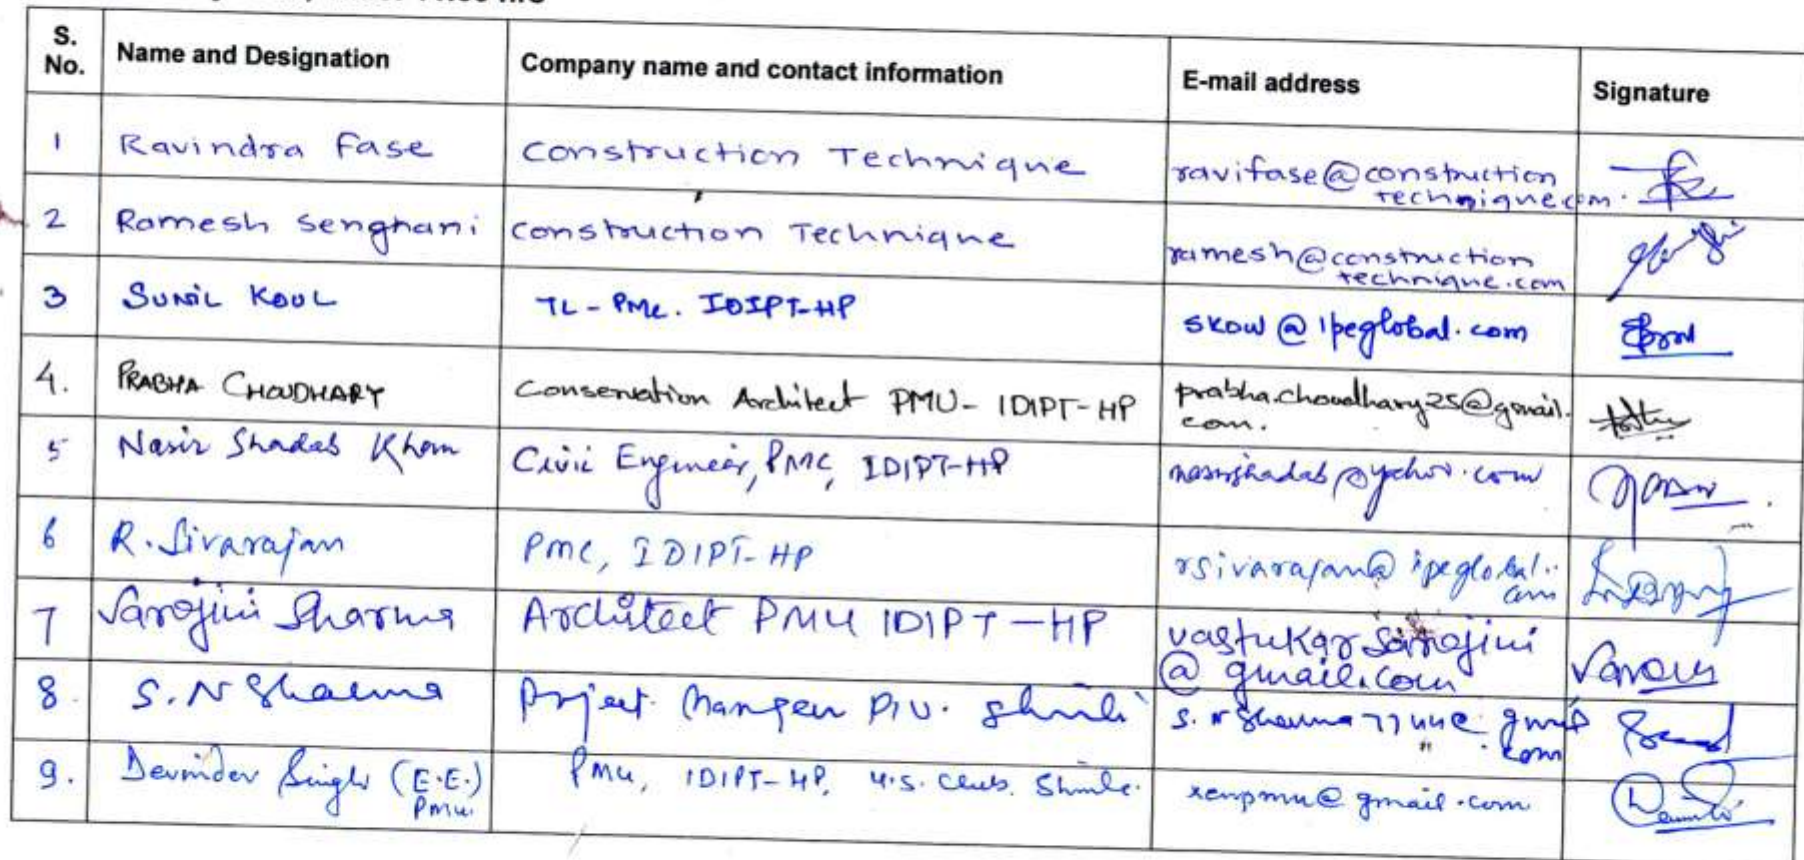 S. No. Name and Designation Company name and contact information E-mail address Signature
1 Ravindra Fase Construction Technique ravifase@construction
techniquecom.
2 Ramesh Senghani Construction Technique ramesh@construction
technique.com
3 SUNIL KOUL TL - PMC. IDIPT-HP skoul@ipeglobal.com
4. PRABHA CHOUDHARY Conservation Architect PMU- IDIPT-HP prabha.choudhary25@gmail.
com.
5 Nasir Shadab Khan Civil Engineer, PMC, IDIPT-HP nasirshadab@yahoo.com
6 R. Sivarajan PMC, IDIPT-HP rsivarajan@ipeglobal.
com
7 Sarojini Sharma Architect PMU IDIPT-HP vastukarsarojini
@gmail.com
8. S.N Sharma Project Manger PIU.
9. Devinder Singh (E.E.) PMU, IDIPT-HP, U.S. Club. Shimla. xenpmu@gmail.com
PMU.